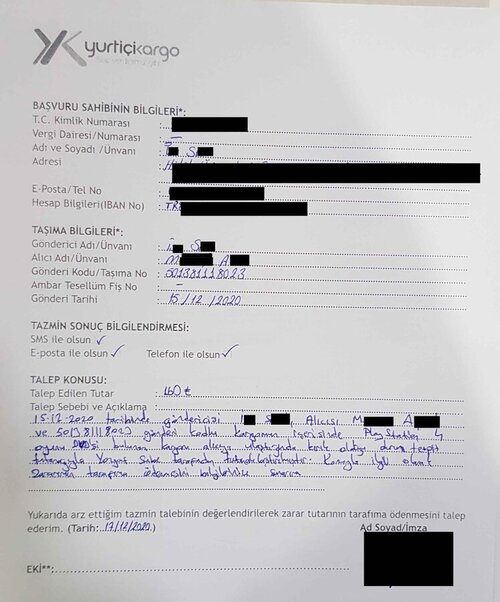 yurtiçikargo
BAŞVURU SAHİBİNİN BİLGİLERİ*:
T.C. Kimlik Numarası :
Vergi Dairesi/Numarası : —
Adı ve Soyadı /Ünvanı : S
Adresi :
E-Posta/Tel No :
Hesap Bilgileri(IBAN No) : TR
TAŞIMA BİLGİLERİ*:
Gönderici Adı/Ünvanı : S
Alıcı Adı/Ünvanı : M A
Gönderi Kodu/Taşıma No : 501381118023
Ambar Tesellüm Fiş No : —
Gönderi Tarihi : 15/12/2020
TAZMİN SONUÇ BİLGİLENDİRMESİ:
SMS ile olsun ✓
E-posta ile olsun ✓ Telefon ile olsun ✓
TALEP KONUSU:
Talep Edilen Tutar : 160 ₺
Talep Sebebi ve Açıklama :
15-12-2020 tarihinde göndericisi S , Alıcısı M A
ve 501381118023 gönderi kodlu kargomun içerisinde PlayStation 4
oyunu bulunan kargom alıcıya ulaştığında kırık olduğu durum tespit
tutanağıyla Yozgat Şube tarafından tutanaklaştırılmıştır. Konuyla ilgili olarak
zararımın tarafıma ödenmesini bilgilerinize sunarım
Yukarıda arz ettiğim tazmin talebinin değerlendirilerek zarar tutarının tarafıma ödenmesini talep
ederim. (Tarih: 17/12/2020)
Ad Soyad/İmza
EKİ**: